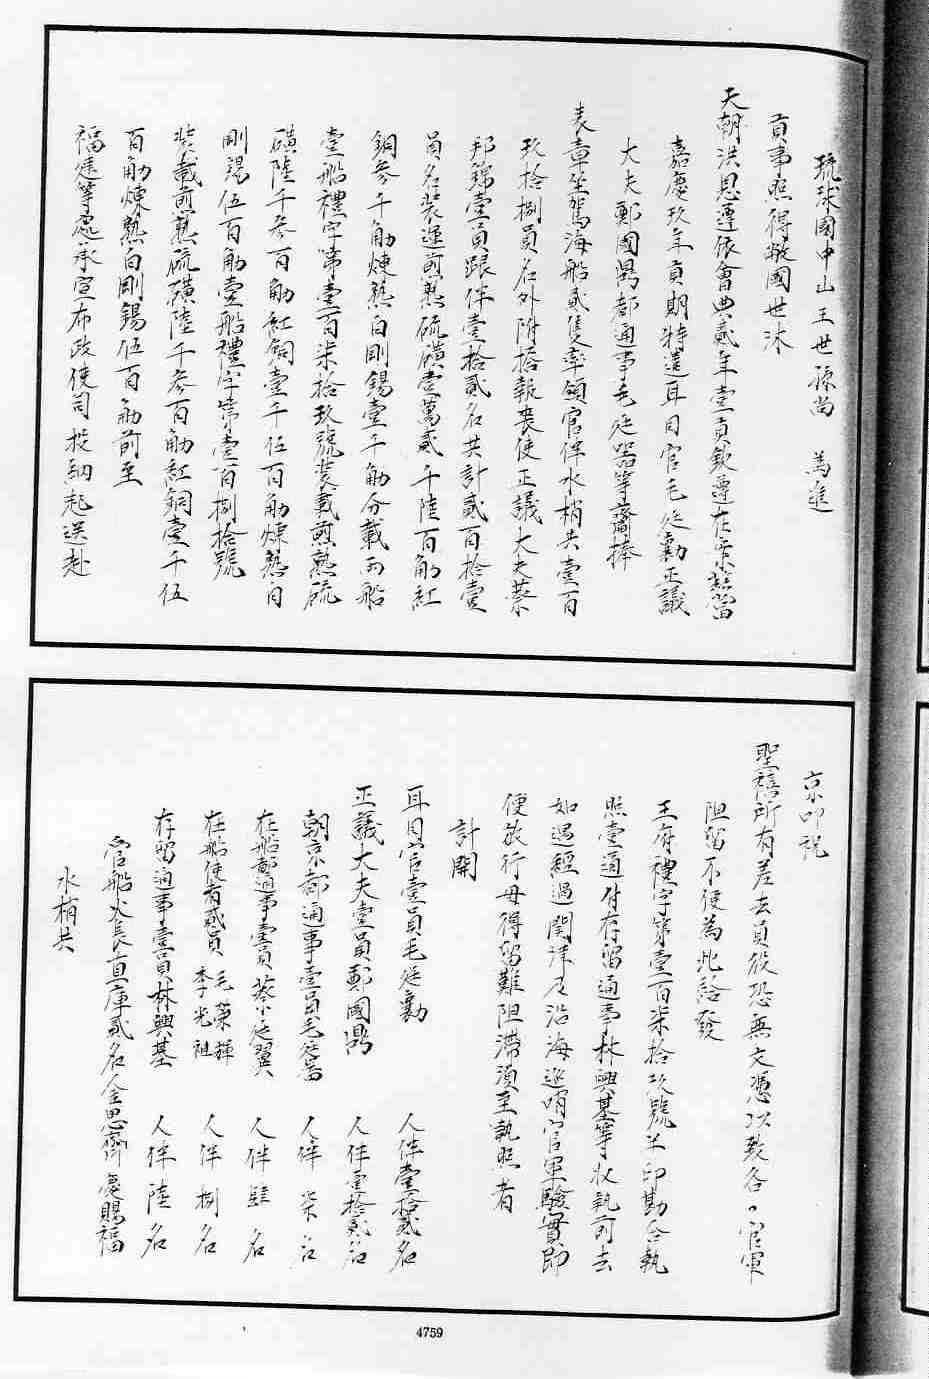 琉球國中山王世孫尚　為進
貢事照得敝國世沐
天朝洪恩遵依會典貳年壹貢欽遵在案茲當
嘉慶玖年貢期特遣耳目官毛廷勷正議
大夫鄭國鼎都通事毛廷器等齎捧
表章坐駕海船貳隻率領官伴水梢共壹百
玖拾捌員名外附搭報喪使正議大夫蔡
邦錦壹員跟伴壹拾貳名共計貳百拾壹
員名裝運煎熟硫磺壹萬貳千陸百觔紅
銅參千觔煉熟白剛錫壹千觔分載兩船
壹船禮字第壹百柒拾玖號裝載煎熟硫
磺陸千參百觔紅銅壹千伍百觔煉熟白
剛錫伍百觔壹船禮字第壹百捌拾號
裝載煎熟硫磺陸千參百觔紅銅壹千伍
百觔煉熟白剛錫伍百觔前至
福建等處承宣布政使司投納起送赴
京叩祝
聖禧所有差去員役恐無文憑以致各々官軍
阻留不便為此給發
王府禮字第壹百柒拾玖號半印勘合執
照壹通付存留通事林興基等收執前去
如遇經過關津及沿海巡哨官軍驗實即
便放行毋得留難阻滯須至執照者
計開
耳目官壹員毛廷勷　人伴壹拾貳名
正議大夫壹員鄭國鼎　人伴壹拾貳名
朝京都通事壹員毛廷器　人伴柒名
在船都通事壹員蔡廷翼　人伴肆名
在船使者貳員毛榮輝李光祖　人伴捌名
存留通事壹員林興基　人伴陸名
管船火長直庫貳名金思齊慶賜福
水梢共
4759